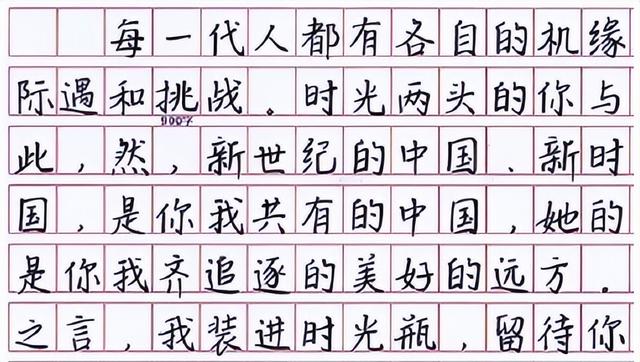 每一代人都有各自的机缘
际遇和挑战。时光两头的你与
900字
此，然，新世纪的中国、新时
国，是你我共有的中国，她的
是你我齐追逐的美好的远方。
之言，我装进时光瓶，留待你